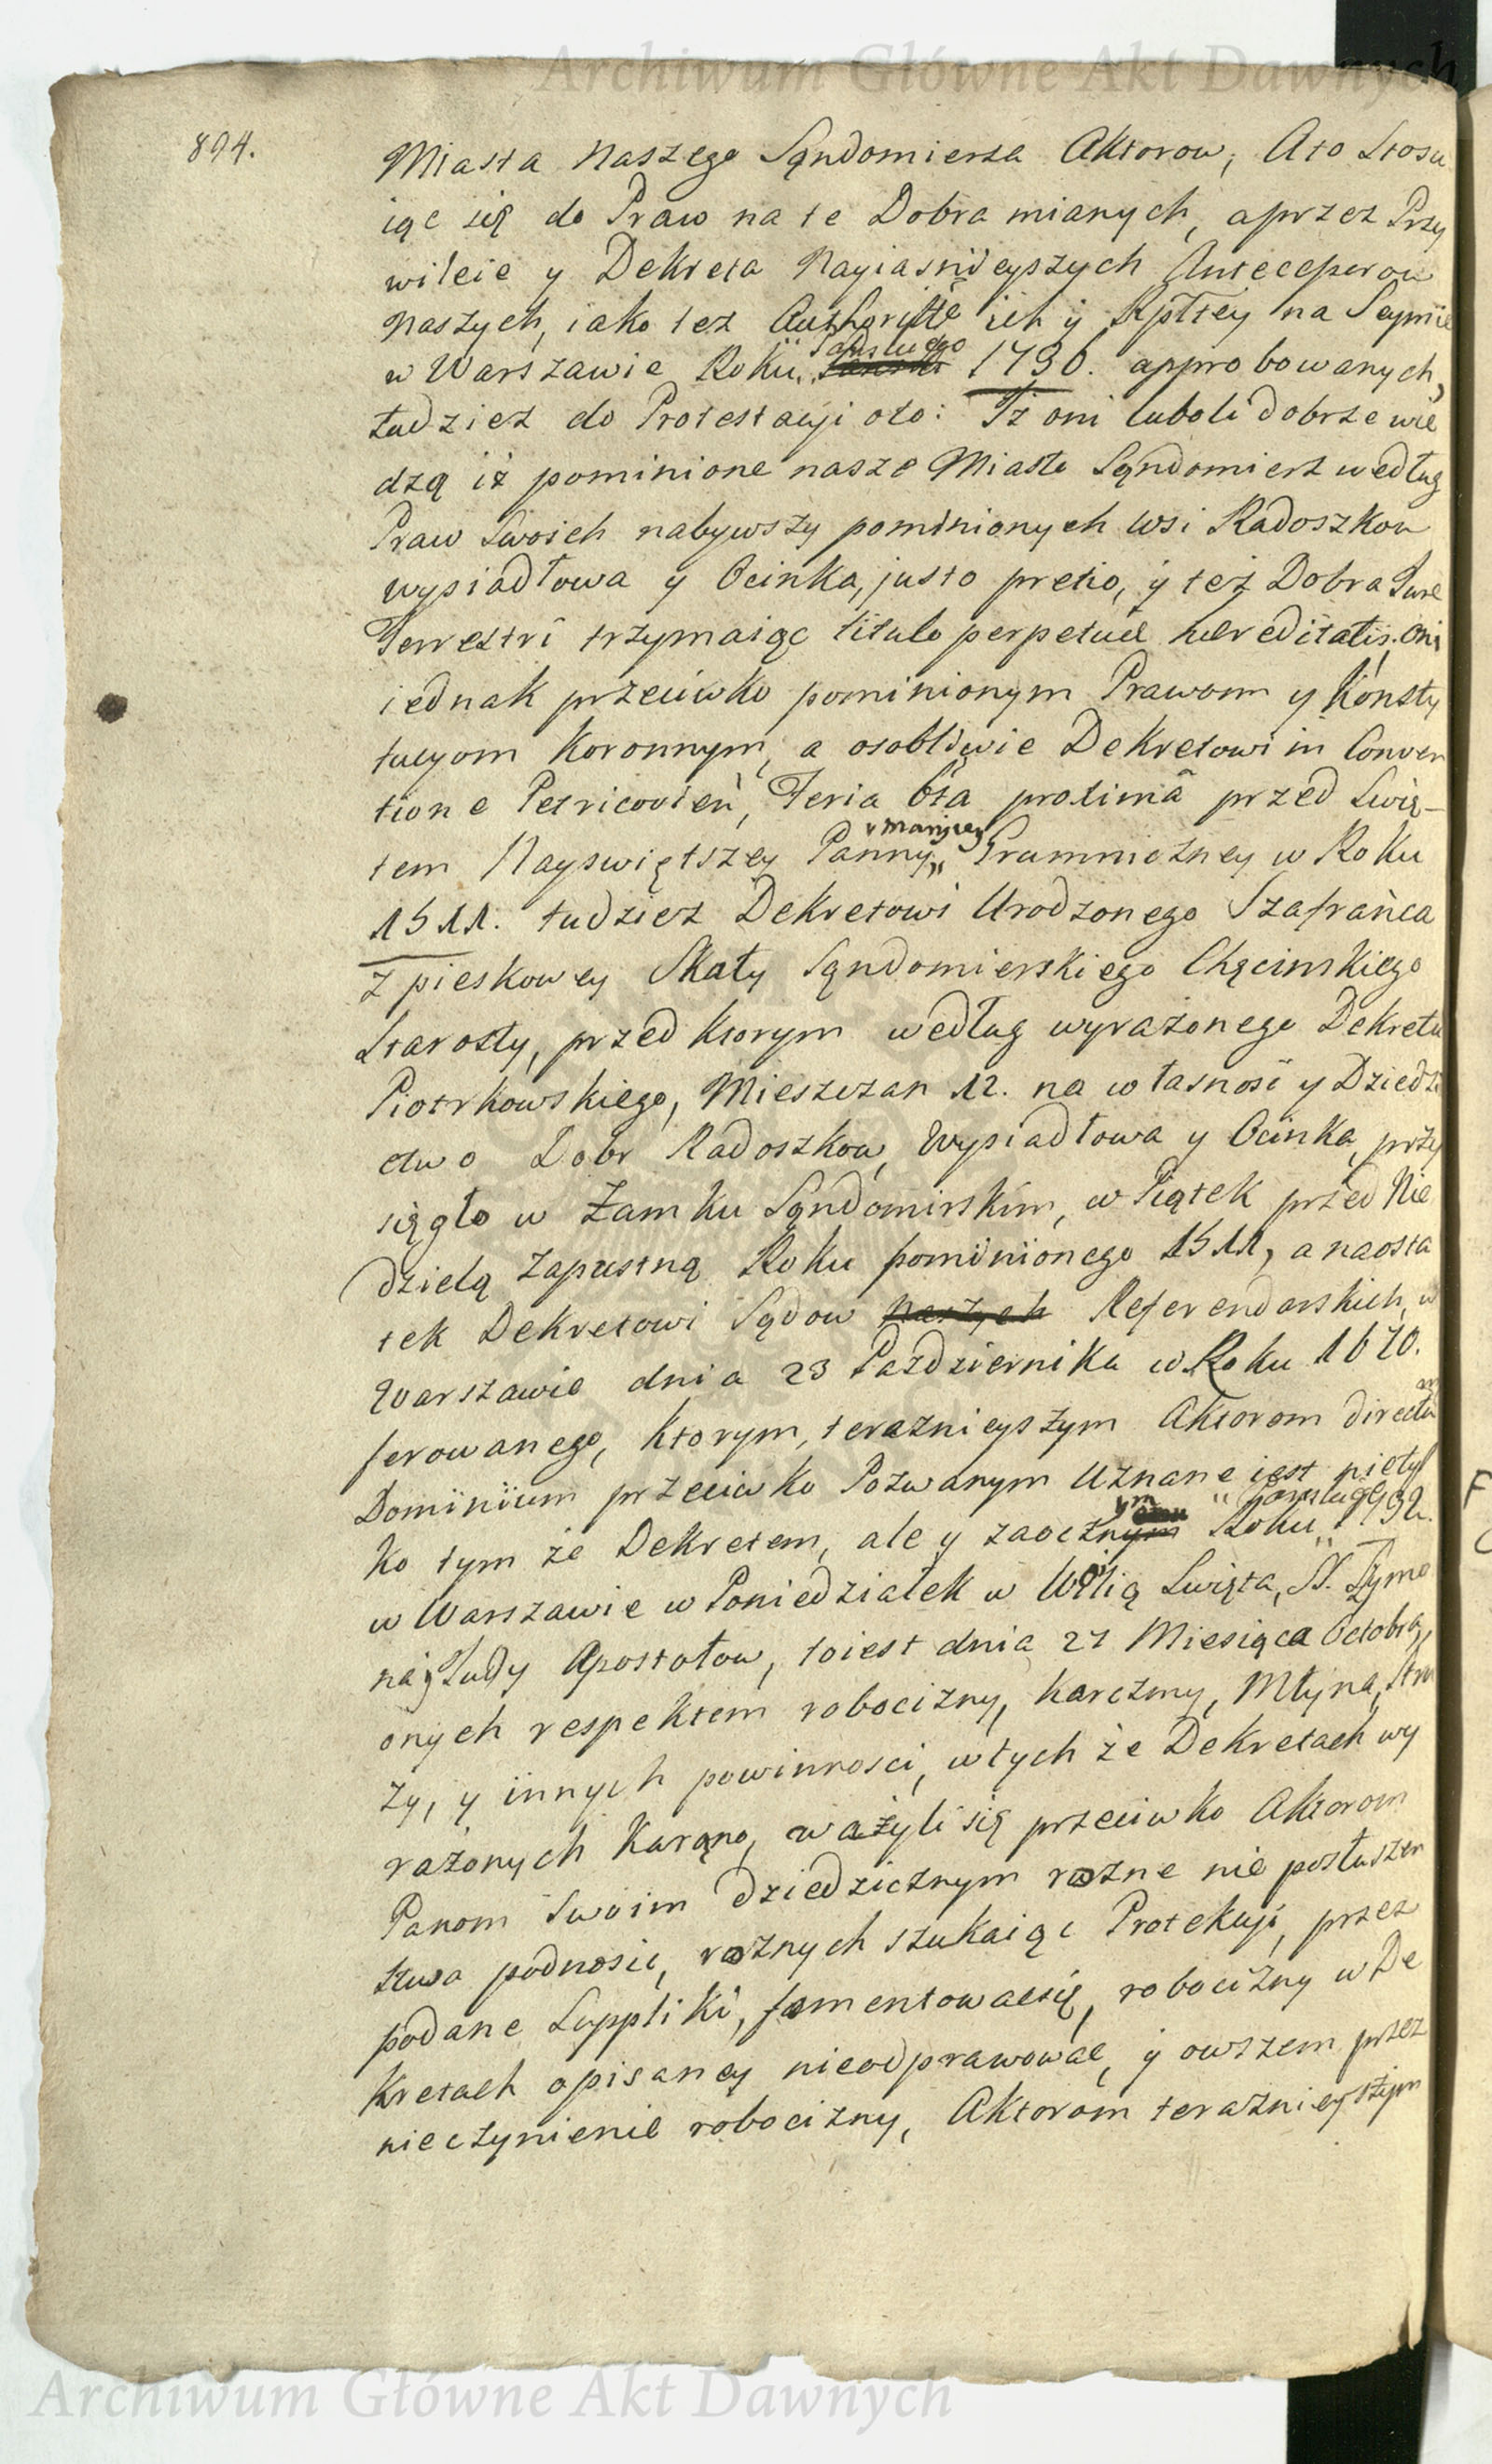 Archiwum Główne Akt Dawnych
894.
Miasta Naszego Sąndomierza Aktorow, Ato Stosu
iąc się do Praw na te Dobra mianych, aprzez Przy
wileie y Dekreta Nayiasnieyszych Antecessorow
Naszych, iako też Authoritte ich y Rpltey na Seymie
w Warszawie Roku 1736. approbowanych,
tudziesz do Protestacyi oto: Iż oni luboli dobrze wie
dzą iż pominione nasze Miasto Sąndomierz według
Praw Swoich nabywszy pominionych Wsi Radoszkow
Wysiadłowa y Ocinka, justo pretio, y też Dobra Jure
Terrestri trzymaiąc titulo perpetuæ hæreditatis. Oni
iednak przeciwko pominionym Prawom y Konsty
tucyom Koronnym, a osobliwie Dekretowi in Conven
tione Petricovien, Feria 6ta proximâ przed Swię-
tem Nayswiętszey Panny Maryiey Grumniczney w Roku
1511. tudziesz Dekretowi Urodzonego Szafrańca
z pieskowey Skały Sąndomierskiego Chęcinskiego
Starosty, przed ktorym według wyrażonego Dekretu
Piotrkowskiego, Mieszczan 12. na własnosć y Dziedzi
ctwo Dobr Radoszkow, Wysiadłowa y Ocinka, przy
sięgło w Zamku Sąndomirskim, w Piątek przed Nie
dzielą Zapustną Roku pominionego 1511, a naosta
tek Dekretowi Sądow naszych Referendarskich, w
Warszawie dnia 23 Pazdziernika w Roku 1670.
ferowanego, ktorym, teraznieyszym Aktorom directum
Dominium przeciwko Pozwanym Uznane iest nietyl
ko tym że Dekretem, ale y zaocznym Roku 1732.
w Warszawie w Poniedziałek w Wilią Swięta, SS. Szymo
na y Judy Apostołow, toiest dnia 27 Miesiąca Octobra,
onych respektem robocizny, karczmy, Młyna, Stru
ży, y innych powinnosci, wtych że Dekretach wy
rażonych Karąno, ważyli się przeciwko Aktorom
Panom Swoim dziedzicznym rozne nie posłuszen
stwa podnosic, roznych szukaiąc Protekcyi, przez
podane Suppliki, fomentowacsię, robocizny w De
kretach opisaney nieodprawowac, y owszem przez
nieczynienie robocizny, Aktorom teraznieyszym
Archiwum Główne Akt Dawnych